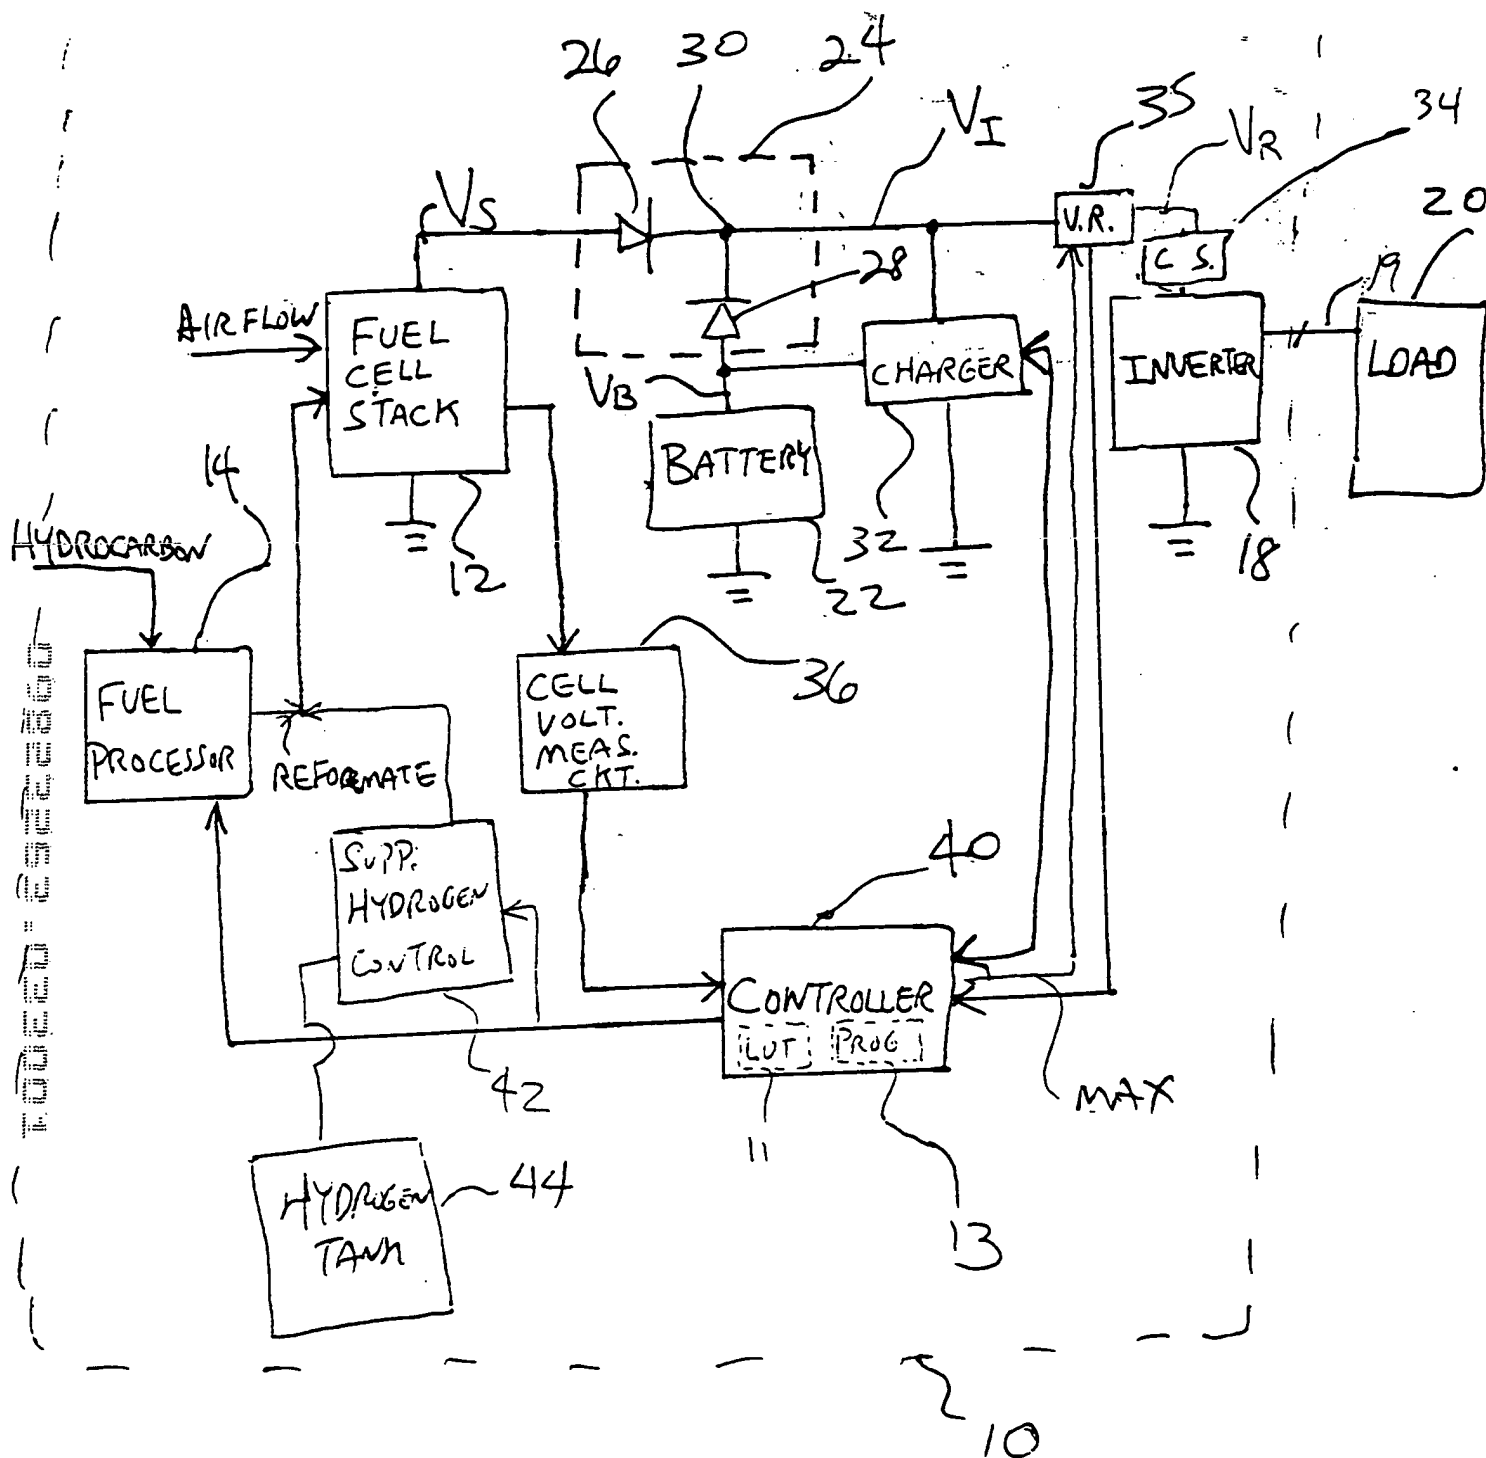 26
30
24
35
34
VI
VR
20
VS
V.R.
C.S.
19
28
AIRFLOW
FUEL
CELL
STACK
CHARGER
INVERTER
LOAD
VB
BATTERY
14
HYDROCARBON
12
32
22
18
36
FUEL
PROCESSOR
CELL
VOLT.
MEAS.
CKT.
REFORMATE
SUPP.
HYDROGEN
CONTROL
40
CONTROLLER
LUT
PROG
42
11
MAX
HYDROGEN
TANK
44
13
10